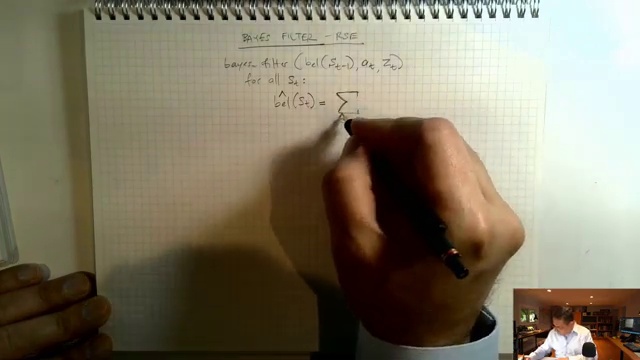 BAYES FILTER - RSE
bayes-filter (bel(St-1), at, Zt)
for all St:
b̂el(St) = ∑